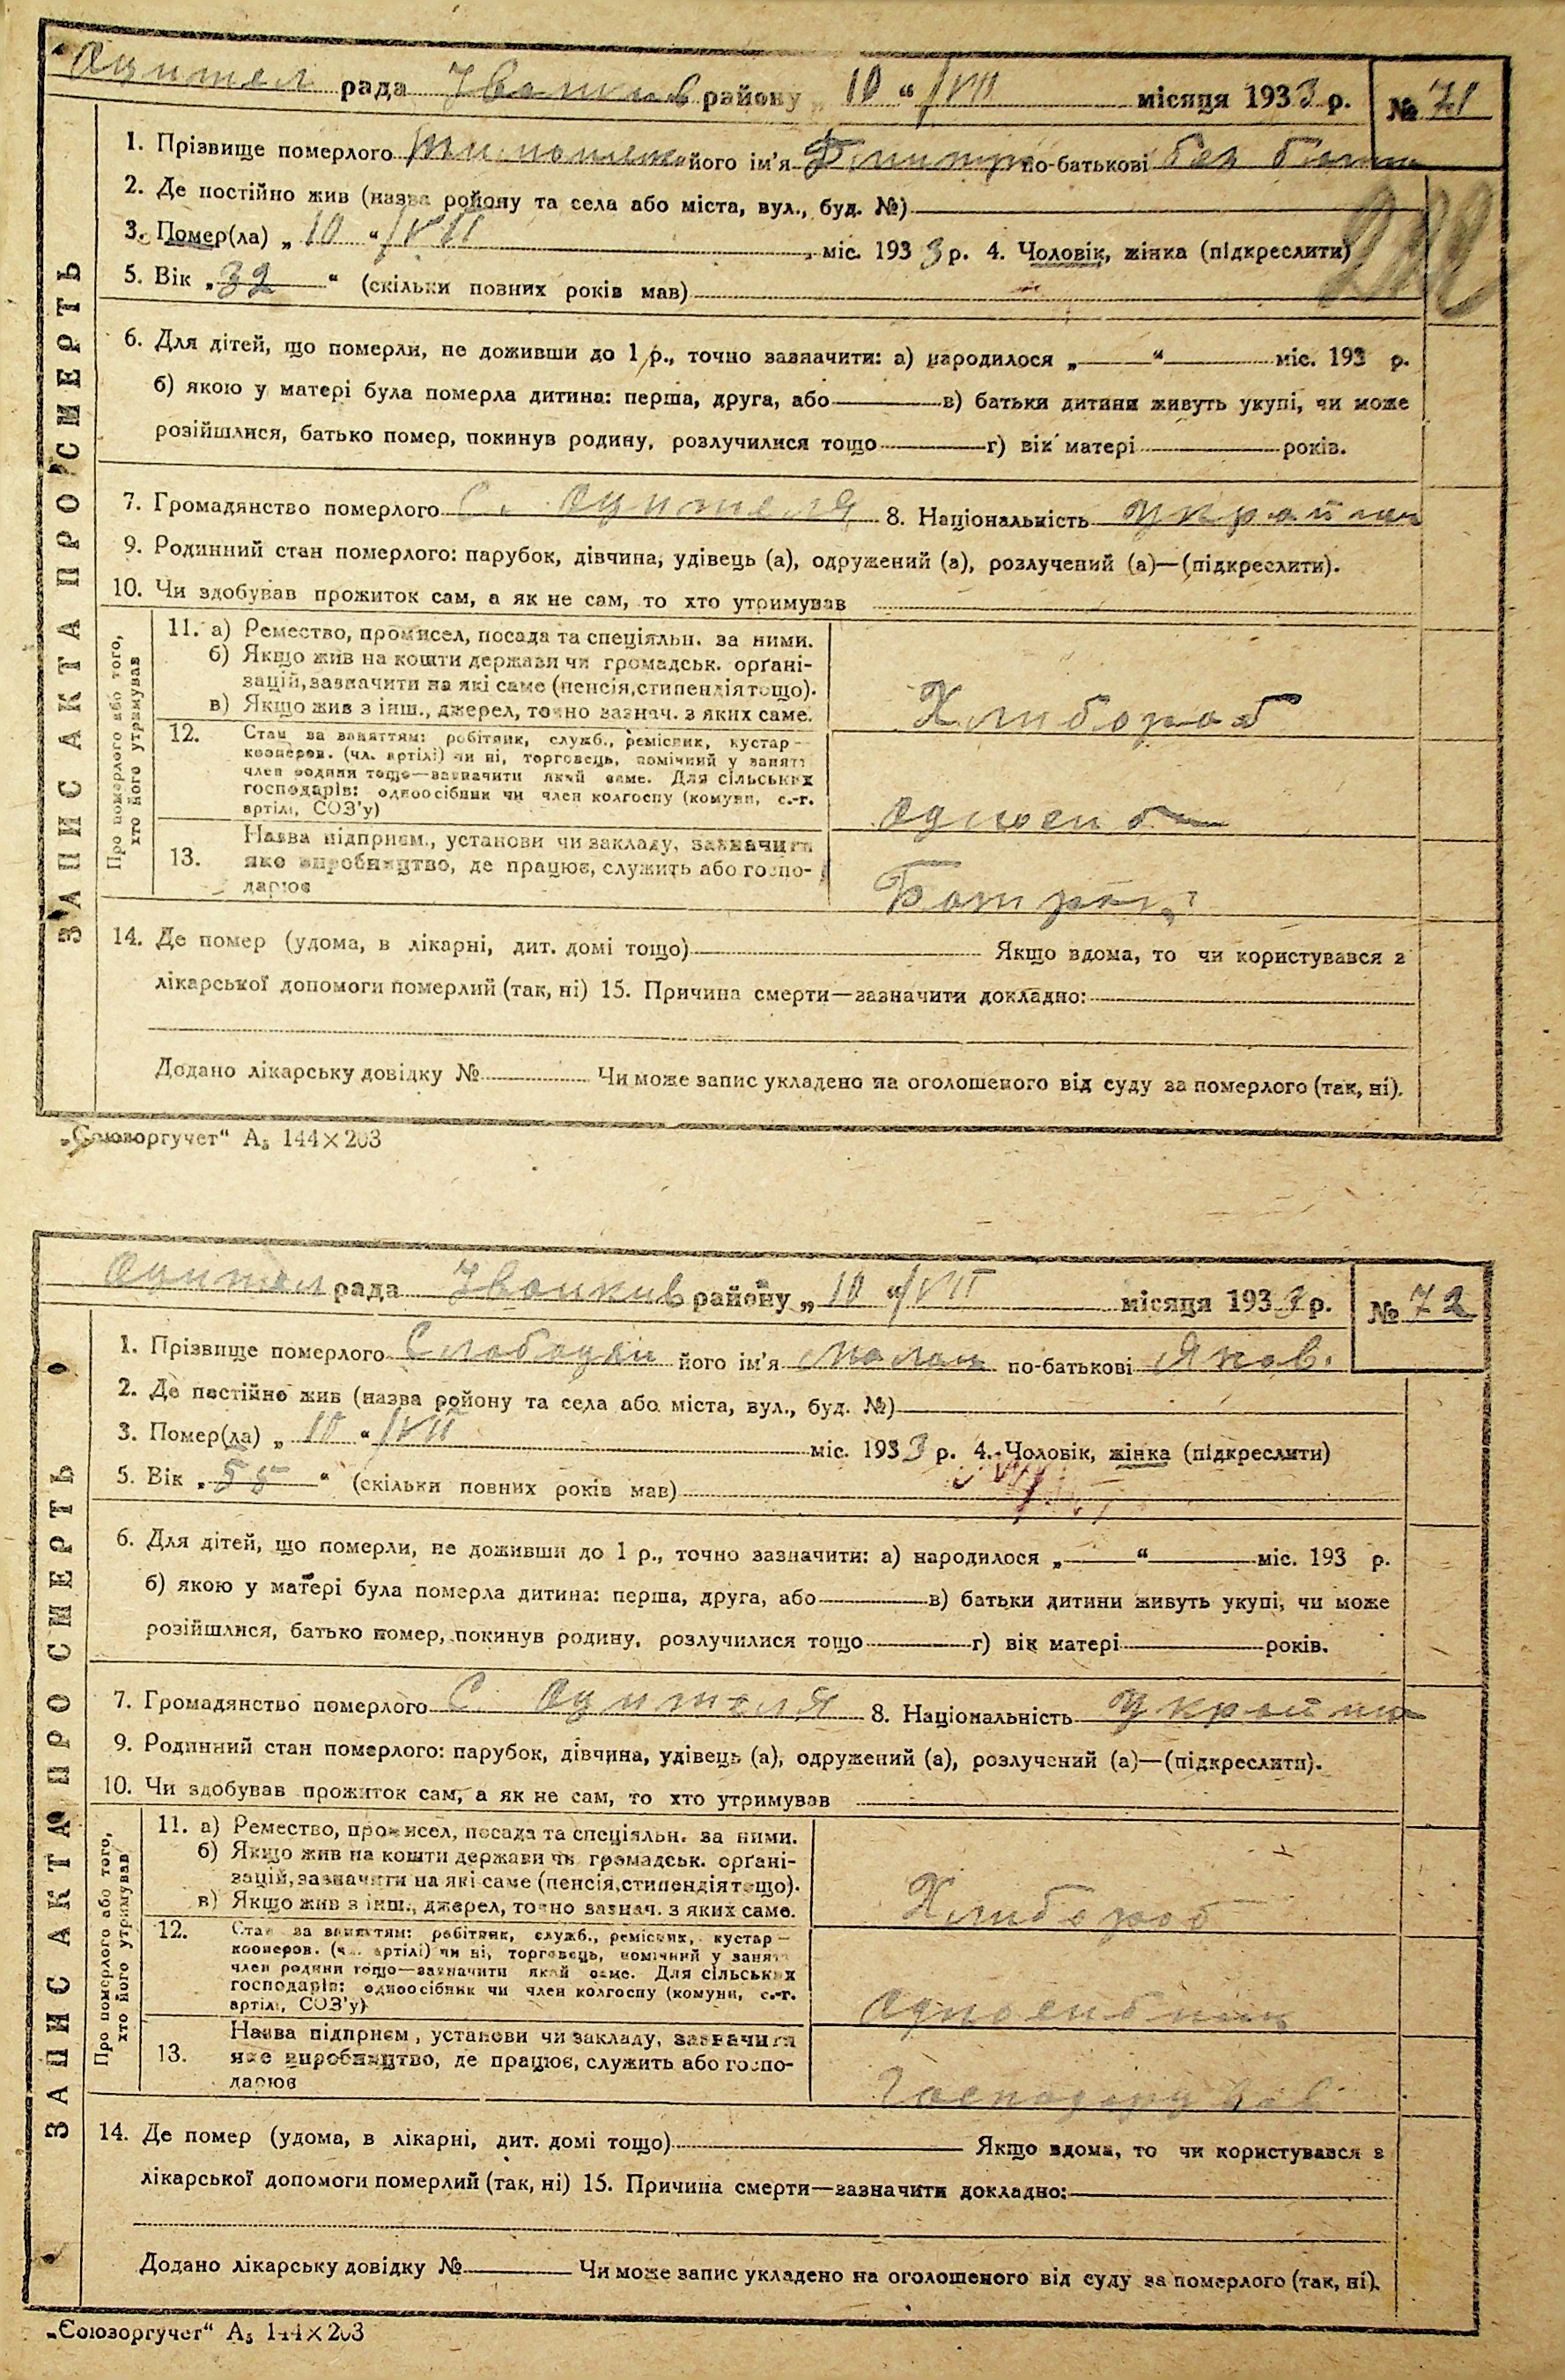 рада Іванкив району „ 10 “ /VII місяця 1933 р. № 71
ЗАПИС АКТА ПРО СМЕРТЬ
1. Прізвище померлого його ім'я по-батькові без батьк
2. Де постійно жив (назва ройону та села або міста, вул., буд. №)
3. Помер(ла) „ 10 “ /VII міс. 1933 р. 4. Чоловік, жінка (підкреслити)
5. Вік „ 32 “ (скільки повних років мав)
6. Для дітей, що померли, не доживши до 1 р., точно зазначити: а) народилося „ “ міс. 193 р.
б) якою у матері була померла дитина: перша, друга, або в) батьки дитини живуть укупі, чи може
розійшлися, батько помер, покинув родину, розлучилися тощо г) вік матері років.
7. Громадянство померлого С. Оцителя 8. Національність україн
9. Родинний стан померлого: парубок, дівчина, удівець (а), одружений (а), розлучений (а)—(підкреслити).
10. Чи здобував прожиток сам, а як не сам, то хто утримував
Про померлого або того,
хто його утримував
11. а) Ремество, промисел, посада та спеціяльн. за ними.
б) Якщо жив на кошти держави чи громадськ. орґані-
зацій, зазначити на які саме (пенсія, стипендія тощо).
в) Якщо жив з інш., джерел, точно зазнач. з яких саме.
Хлибороб
12. Стан за заняттям: робітник, служб., ремісник, кустар—
кооперов. (чл. артілі) чи ні, торговець, помічний у занятт
член родини тощо—зазначити який саме. Для сільських
господарів: одноосібник чи член колгоспу (комуни, с.-г.
артілі, СОЗ'у)
13. Назва підприєм., установи чи закладу, зазначити
яке виробництво, де працює, служить або госпо-
дарює
14. Де помер (удома, в лікарні, дит. домі тощо) Якщо вдома, то чи користувався з
лікарської допомоги померлий (так, ні) 15. Причина смерти—зазначити докладно:
Додано лікарську довідку № Чи може запис укладено на оголошеного від суду за померлого (так, ні).
„Союзоргучет“ А₅ 144×203
рада Іванкив району „ 10 “ /VII місяця 1933 р. № 72
ЗАПИС АКТА ПРО СМЕРТЬ
1. Прізвище померлого Слободян його ім'я по-батькові Яков.
2. Де постійно жив (назва ройону та села або міста, вул., буд. №)
3. Помер(ла) „ 10 “ /VII міс. 1933 р. 4. Чоловік, жінка (підкреслити)
5. Вік „ 55 “ (скільки повних років мав)
6. Для дітей, що померли, не доживши до 1 р., точно зазначити: а) народилося „ “ міс. 193 р.
б) якою у матері була померла дитина: перша, друга, або в) батьки дитини живуть укупі, чи може
розійшлися, батько помер, покинув родину, розлучилися тощо г) вік матері років.
7. Громадянство померлого С. Оцителя 8. Національність україн
9. Родинний стан померлого: парубок, дівчина, удівець (а), одружений (а), розлучений (а)—(підкреслити).
10. Чи здобував прожиток сам, а як не сам, то хто утримував
Про померлого або того,
хто його утримував
11. а) Ремество, промисел, посада та спеціяльн. за ними.
б) Якщо жив на кошти держави чи громадськ. орґані-
зацій, зазначити на які саме (пенсія, стипендія тощо).
в) Якщо жив з інш., джерел, точно зазнач. з яких саме.
Хлибороб
12. Стан за заняттям: робітник, служб., ремісник, кустар—
кооперов. (чл. артілі) чи ні, торговець, помічний у занятт
член родини тощо—зазначити який саме. Для сільських
господарів: одноосібник чи член колгоспу (комуни, с.-г.
артілі, СОЗ'у)
Одноосибник
13. Назва підприєм., установи чи закладу, зазначити
яке виробництво, де працює, служить або госпо-
дарює
Господарував
14. Де помер (удома, в лікарні, дит. домі тощо) Якщо вдома, то чи користувався з
лікарської допомоги померлий (так, ні) 15. Причина смерти—зазначити докладно:
Додано лікарську довідку № Чи може запис укладено на оголошеного від суду за померлого (так, ні).
„Союзоргучет“ А₅ 144×203